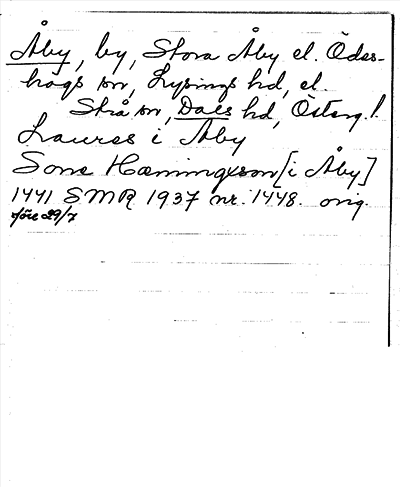 Åby, by, Stora Åby el. Ödes-
högs sn, Lysings hd, el.
Strå sn, Dals hd, Österg. l.
Laures i Åby
Sone Hæmingxson [i Åby]
1441 SMR 1937 nr. 1448. orig.
före 29/7